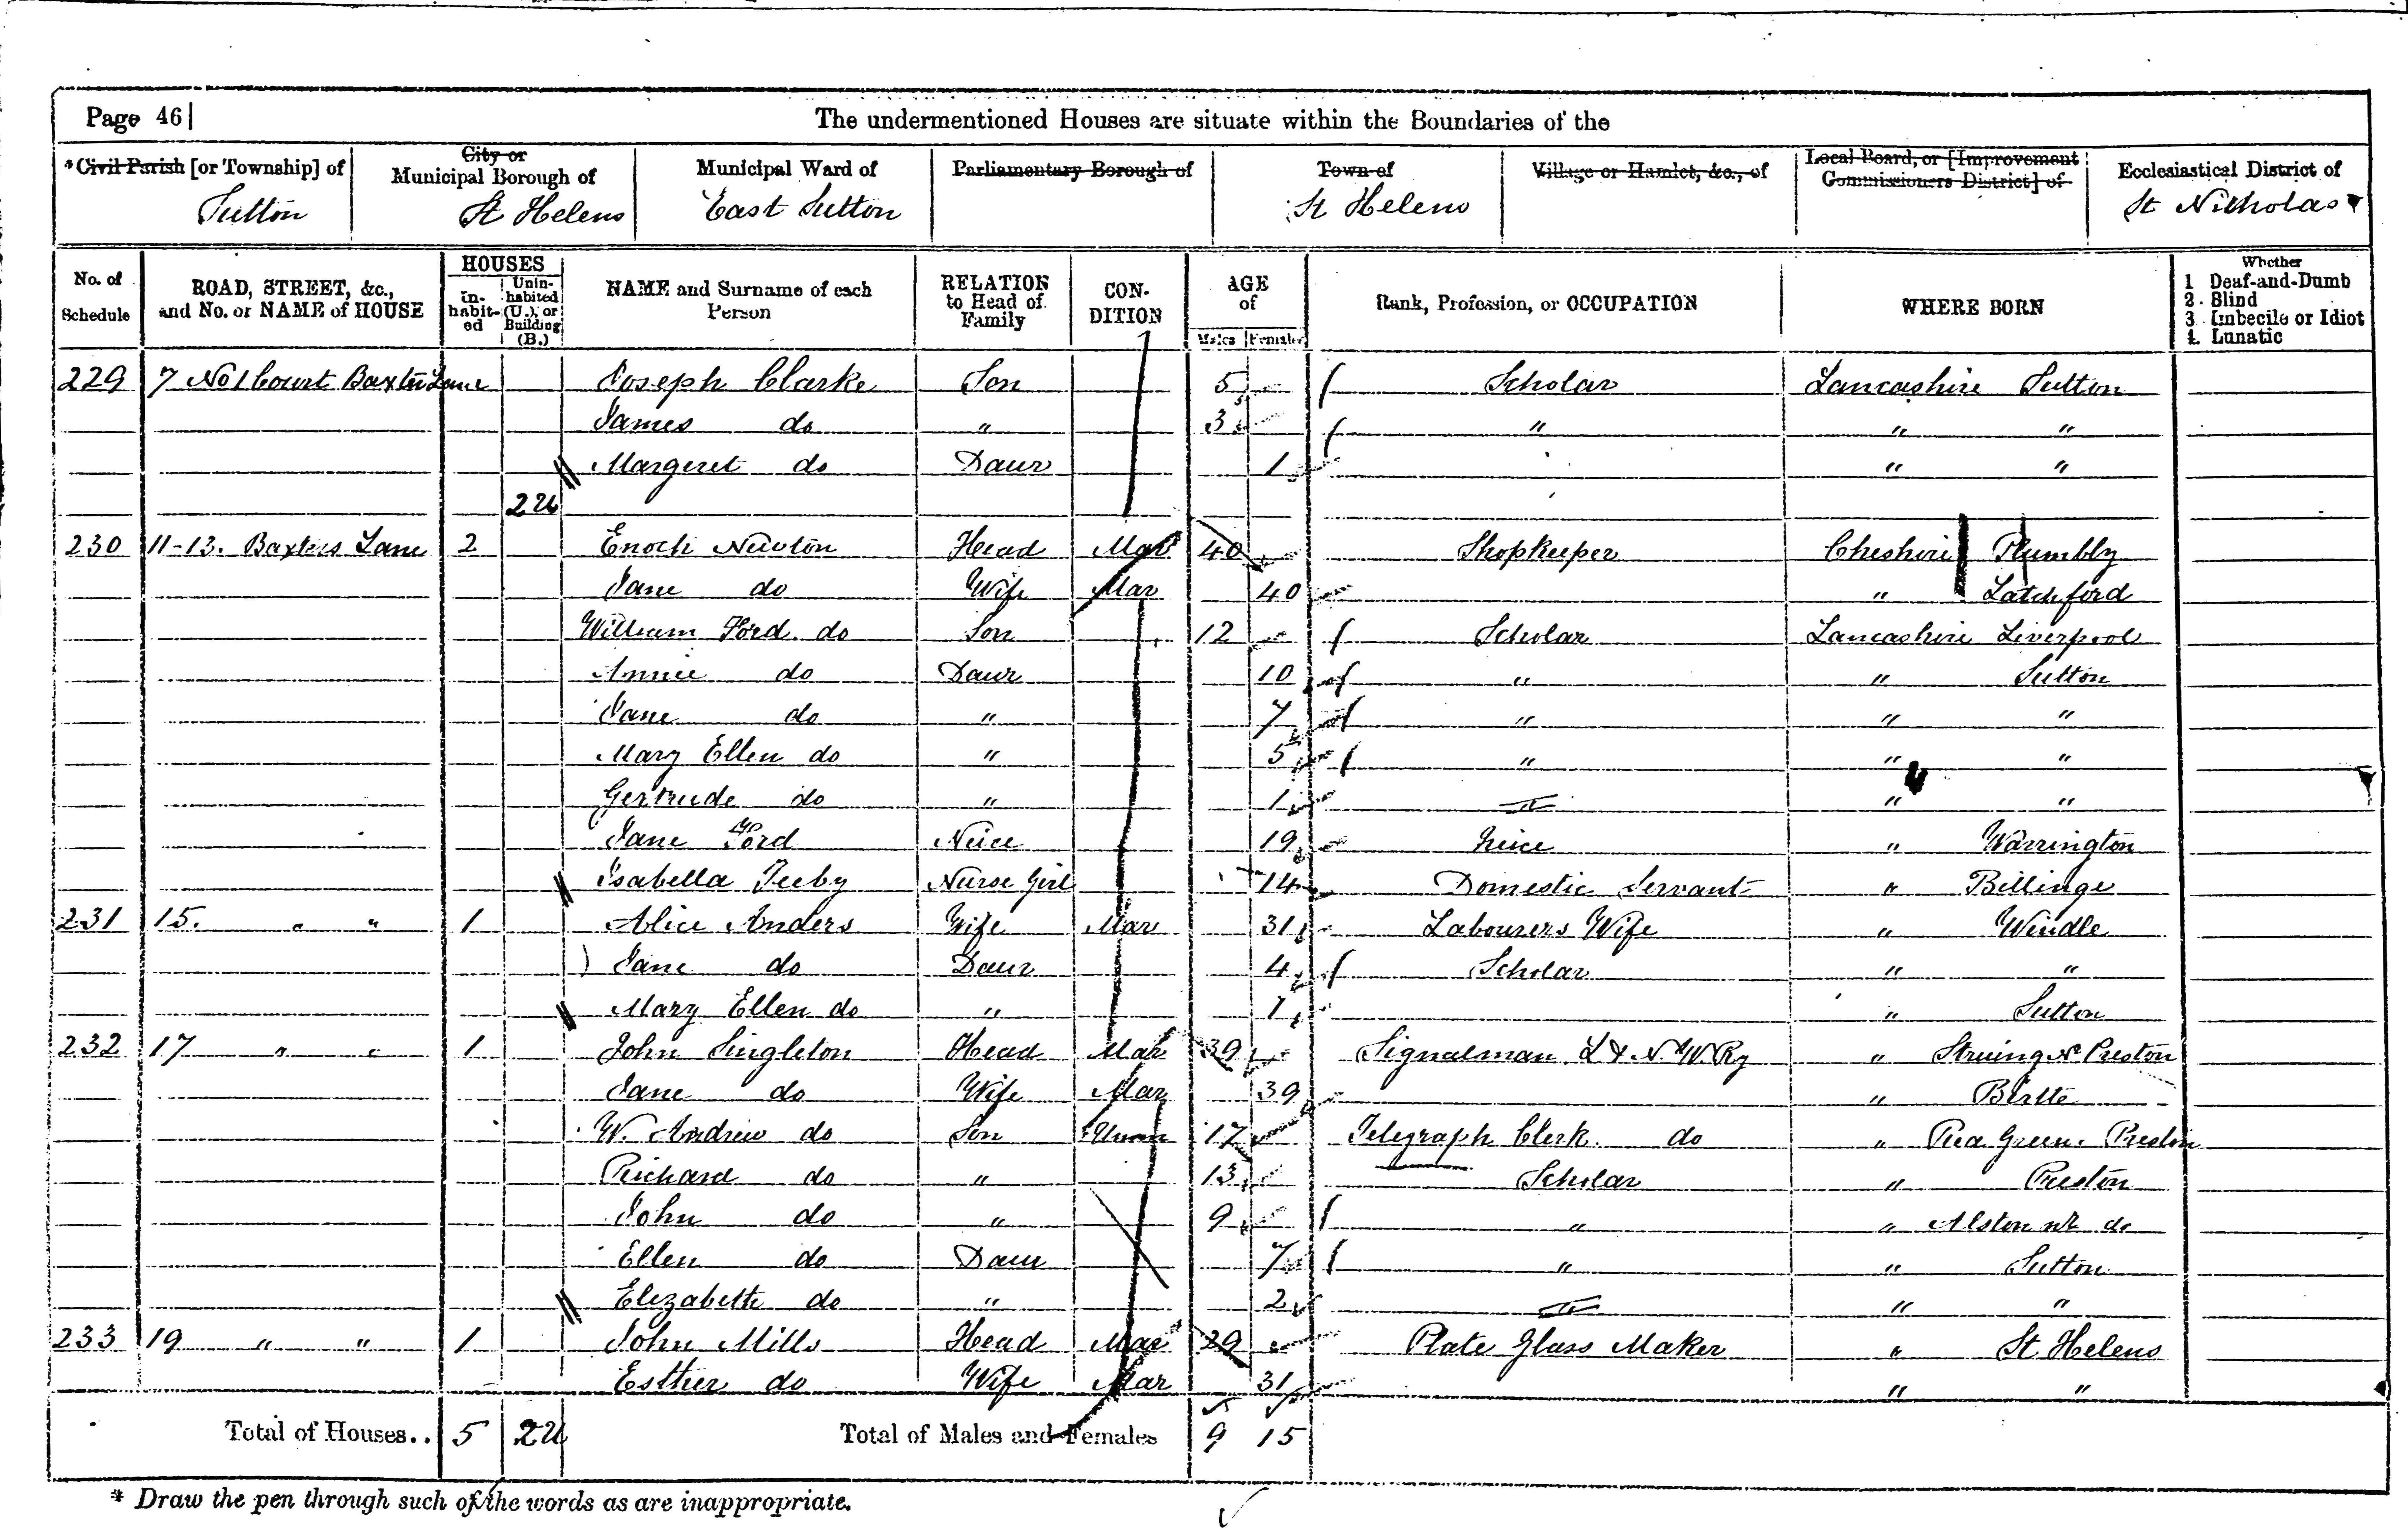 Page 46 The undermentioned Houses are situate within the Boundaries of the
*Civil Parish [or Township] of City or Municipal Borough of Municipal Ward of Parliamentary Borough of Town of Village or Hamlet, &c., of Local Board, or [Improvement Commissioners District] of Ecclesiastical District of
Sutton St Helens East Sutton St Helens St Nicholas
No. of Schedule ROAD, STREET, &c., and No. or NAME of HOUSE HOUSES In-habit-ed Unin-habited (U.), or Building (B.) NAME and Surname of each Person RELATION to Head of Family CON-DITION AGE of Males Females Rank, Profession, or OCCUPATION WHERE BORN Whether 1 Deaf-and-Dumb 2 Blind 3 Imbecile or Idiot 4 Lunatic
229 7 No 1 Court Baxters Lane Joseph Clarke Son 5 Scholar Lancashire Sutton
James do " 3 " " "
Margeret do Daur 1 " "
2U
230 11-13. Baxters Lane 2 Enoch Newton Head Mar 40 Shopkeeper Cheshire Plumbly
Jane do Wife Mar 40 " Latchford
William Ford do Son 12 Scholar Lancashire Liverpool
Annie do Daur 10 " " Sutton
Jane do " 7 " " "
Mary Ellen do " 5 " " "
Gertrude do " 1 " "
Jane Ford Neice 19 Neice " Warrington
Isabella Nurse Girl 14 Domestic Servant " Billinge
231 15. " " 1 Alice Anders Wife Mar 31 Labourers Wife " Windle
Jane do Daur 4 Scholar " "
Mary Ellen do " 1 " Sutton
232 17 " " 1 John Singleton Head Mar 39 Signalman L & N.W.Ry " Nr Preston
Jane do Wife Mar 39 "
W. Andrew do Son Unm 17 Telegraph Clerk do " Green. Preston
Richard do " 13 Scholar " Preston
John do " 9 " " Alston nr do
Ellen do Daur 7 " " Sutton
Elizabeth do " 2 " "
233 19 " " 1 John Mills Head Mar 29 Plate Glass Maker " St Helens
Esther do Wife Mar 31 " "
Total of Houses.. 5 2U Total of Males and Females 9 15
* Draw the pen through such of the words as are inappropriate.